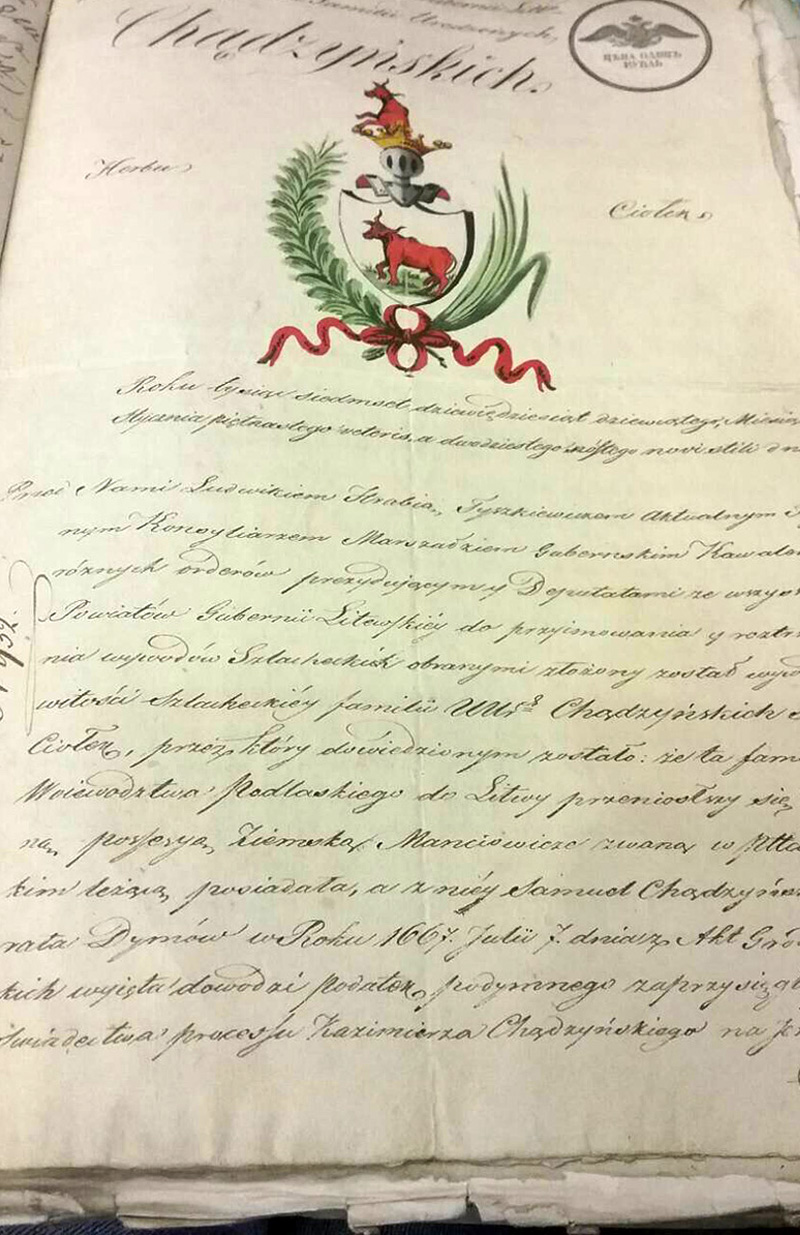 Familii Urodzonych,
Chądzyńskich.
ЦѢНА ОДИНЪ
РУБЛЬ
Herbu
Ciołek
Roku tysiąc siedmset dziewięćdziesiąt dziewiątego, Miesią
Stycznia piętnastego veteris, a dwudziestego szóstego novi stili dn
Przed Nami Ludwikiem Hrabią Tyszkiewiczem Aktualnym
nym Konsyliarzem Marszałkiem Gubernskim Kawaler
różnych orderów prezydującym y Deputatami ze wszys
Powiatów Gubernii Litewskiéy do przyimowania y roztrzą
nia wywodów Szlacheckich obranymi złożony został wywo
witości Szlacheckiéy familii WUr. Chądzyńskich
Ciołek, przez który dowiedzionym zostało: że ta fam
Woiewodztwa Podlaskiego do Litwy przeniosłszy się
na possesyą Ziemską Manciowicze zwaną w
kim leżącą posiadała, a z niéy Samuel Chądzyńs
rata Dymów w Roku 1667. Julii 7. dnia z Akt Gro
kich wyięta dowodzi podatek podymnego zaprzysiągł
świadectwa processu Kazimierza Chądzyńskiego na